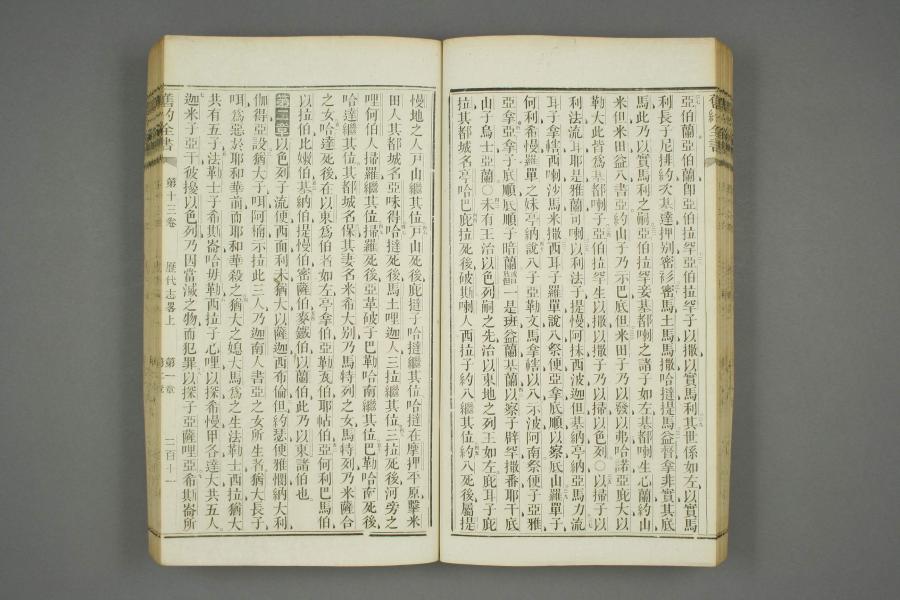 亞伯蘭亞伯蘭卽亞伯拉罕亞伯拉罕子以撒以實馬利其世係如左以實馬
利長子尼排約次基達押別密衫密馬土馬馬哈撻提馬益督拿非實其底
馬此乃以實馬利之嗣亞伯拉罕妾基都喇之諸子如左基都喇生心蘭約山
米但米田益八書亞約山子乃示巴底但米田子乃以發以弗哈諾亞庇大以
勒大此皆爲基都喇子亞伯拉罕生以撒以撒子乃以掃以色列○以掃子以
利法流耳耶是雅蘭可喇以利法子提慢阿抹西波迦但基納亭納亞馬力流
耳子拿轄西喇沙馬米撒西耳子羅單說八祭便亞拿底順以察底山羅單子
何利希慢羅單之妹亭納說八子亞勒文馬拿轄以八示波阿南祭便子亞雅
亞拿亞拿子底順底順子暗蘭是班益蘭基蘭以察子辟罕撒番耶干底
山子烏士亞蘭○未有王治以色列嗣之先治以東地之列王如左庇耳子庇
拉其都城名亭哈巴庇拉死後破斯喇人西拉子約八繼其位約八死後屬提
慢地之人戸山繼其位戸山死後庇撻子哈撻繼其位哈撻在摩押平原擊米
田人其都城名亞味得哈撻死後馬士哩迦人三拉繼其位三拉死後河旁之
哩何伯人掃羅繼其位掃羅死後亞革破子巴勒哈南繼其位巴勒哈南死後
哈達繼其位其都城名保其妻名米希大別乃馬特列之女馬特列乃米薩合
之女哈達死後在以東爲伯者如左亭拿伯亞勒瓦伯耶帖伯亞何利巴馬伯
以拉伯比嫩伯基納伯提慢伯密薩伯麥鐵伯以蘭伯此乃以東諸伯也
第二章以色列子流便西面利未猶大以薩迦西布倫但約瑟便雅憫納大利
伽得亞設猶大子咡阿楠示拉此三人乃迦南人書亞之女所生者猶大長子
咡爲惡於耶和華前而耶和華殺之猶大之媳大馬爲之生法勒士西拉猶大
共有五子法勒士子希斯崙哈毋勒西拉子心哩以探希慢甲各達大共五人
迦米子亞干彼擾以色列乃因當滅之物而犯罪以探子亞薩哩亞希斯崙所
舊約全書
第十三卷
歷代志畧上
第一章
第二章
二百十一